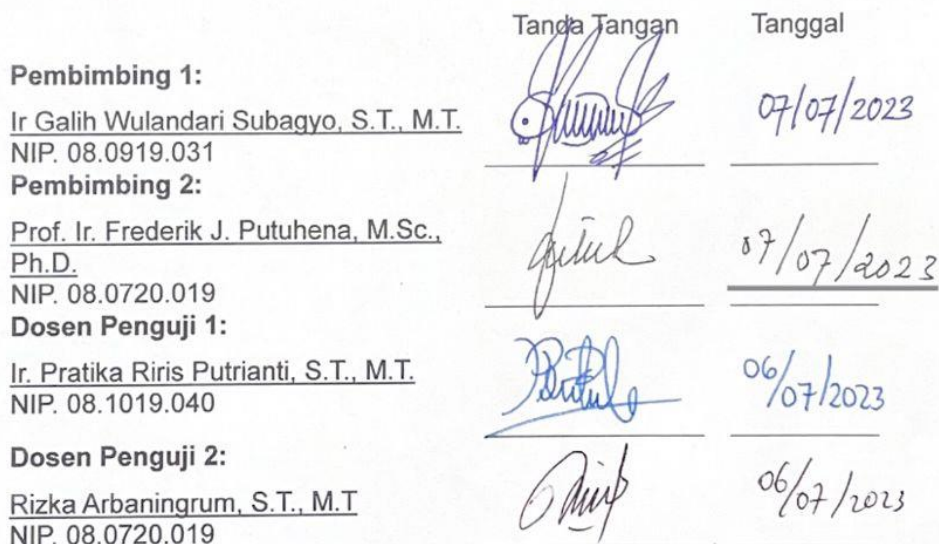 Tanda Tangan Tanggal
Pembimbing 1:
Ir Galih Wulandari Subagyo, S.T., M.T.
NIP. 08.0919.031
07/07/2023
Pembimbing 2:
Prof. Ir. Frederik J. Putuhena, M.Sc.,
Ph.D.
NIP. 08.0720.019
07/07/2023
Dosen Penguji 1:
Ir. Pratika Riris Putrianti, S.T., M.T.
NIP. 08.1019.040
06/07/2023
Dosen Penguji 2:
Rizka Arbaningrum, S.T., M.T
NIP. 08.0720.019
06/07/2023